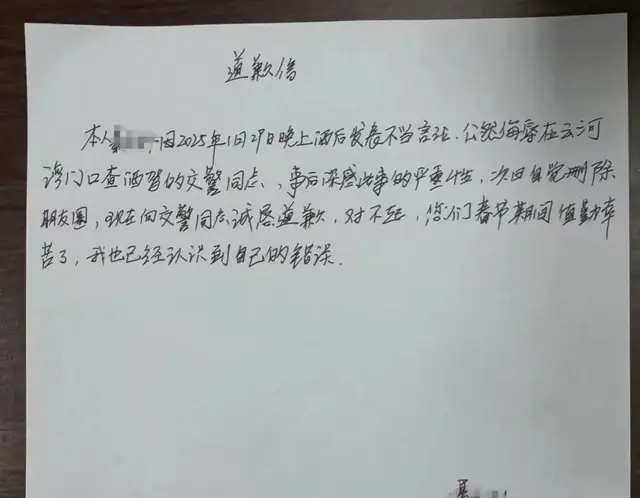 道歉信
本人 因2025年1月29日晚上酒后发表不当言论、公然侮辱在云河
湾门口查酒驾的交警同志,事后深感此事的严重性,次日自觉删除
朋友圈,现在向交警同志诚恳道歉,对不起,您们春节期间值勤辛
苦了,我也已经认识到自己的错误.